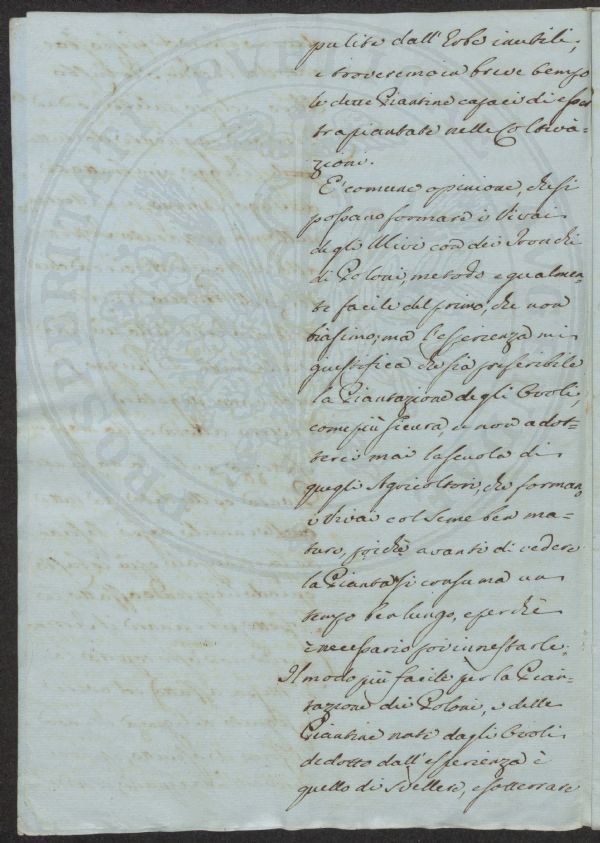 pulite dall'Erbe inutili,
e troveremo in breve tempo
le dette Piantine capaci di esser
trapiantate nelle Coltiva-
zioni.
E' comune opinione, che si
possano formare i Vivai
degli Ulivi con dei Tronchi
di Poloni, metodo egualmen-
te facile del primo, che non
biasimo; ma l'esperienza mi
giustifica che sia preferibile
la Piantazione degli Ovoli,
come più sicura, e non adot-
terei mai la scuola di
quegli Agricoltori, che formano
i Vivai col Seme ben ma-
turo, poichè avanti di vedere
la Pianta si consuma un
tempo ben lungo, e perchè
è necessario poi innestarle.
Il modo più facile per la Pian-
tazione dei Poloni, e delle
Piantine nati dagli Ovoli
dedotto dall'esperienza è
quello di scellere, e sotterrare
PROSPERITATI PUBLICAE